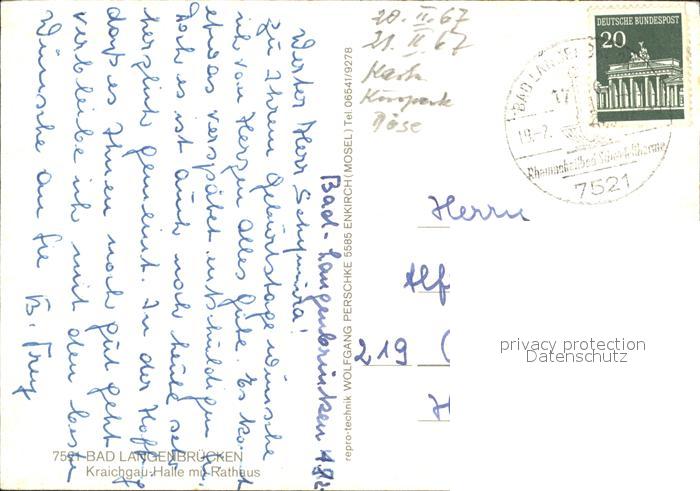 Bad-Langenbrücken
Werter Herr
zu Ihrem Geburtstage wünsche
ich von Herzen alles Gute. Es
etwas verspätet entschuldigen Sie
doch es ist auch noch heute sehr
herzlich gemeint. In der Hoffg
daß es Ihnen noch gut geht
verbleibe ich mit den besten
Wünschen an Sie B. Frey
7521 BAD LANGENBRÜCKEN
Kraichgau-Halle mit Rathaus
repro-technik WOLFGANG PERSCHKE 5585 ENKIRCH (MOSEL) Tel. 06541/9278
20. II. 67
21. II. 67
Karte
Kurpark
Döse
DEUTSCHE BUNDESPOST
20
BAD LANGEN
17
19.-2.
7521
Herrn
Alf
219 (
H
privacy protection
Datenschutz